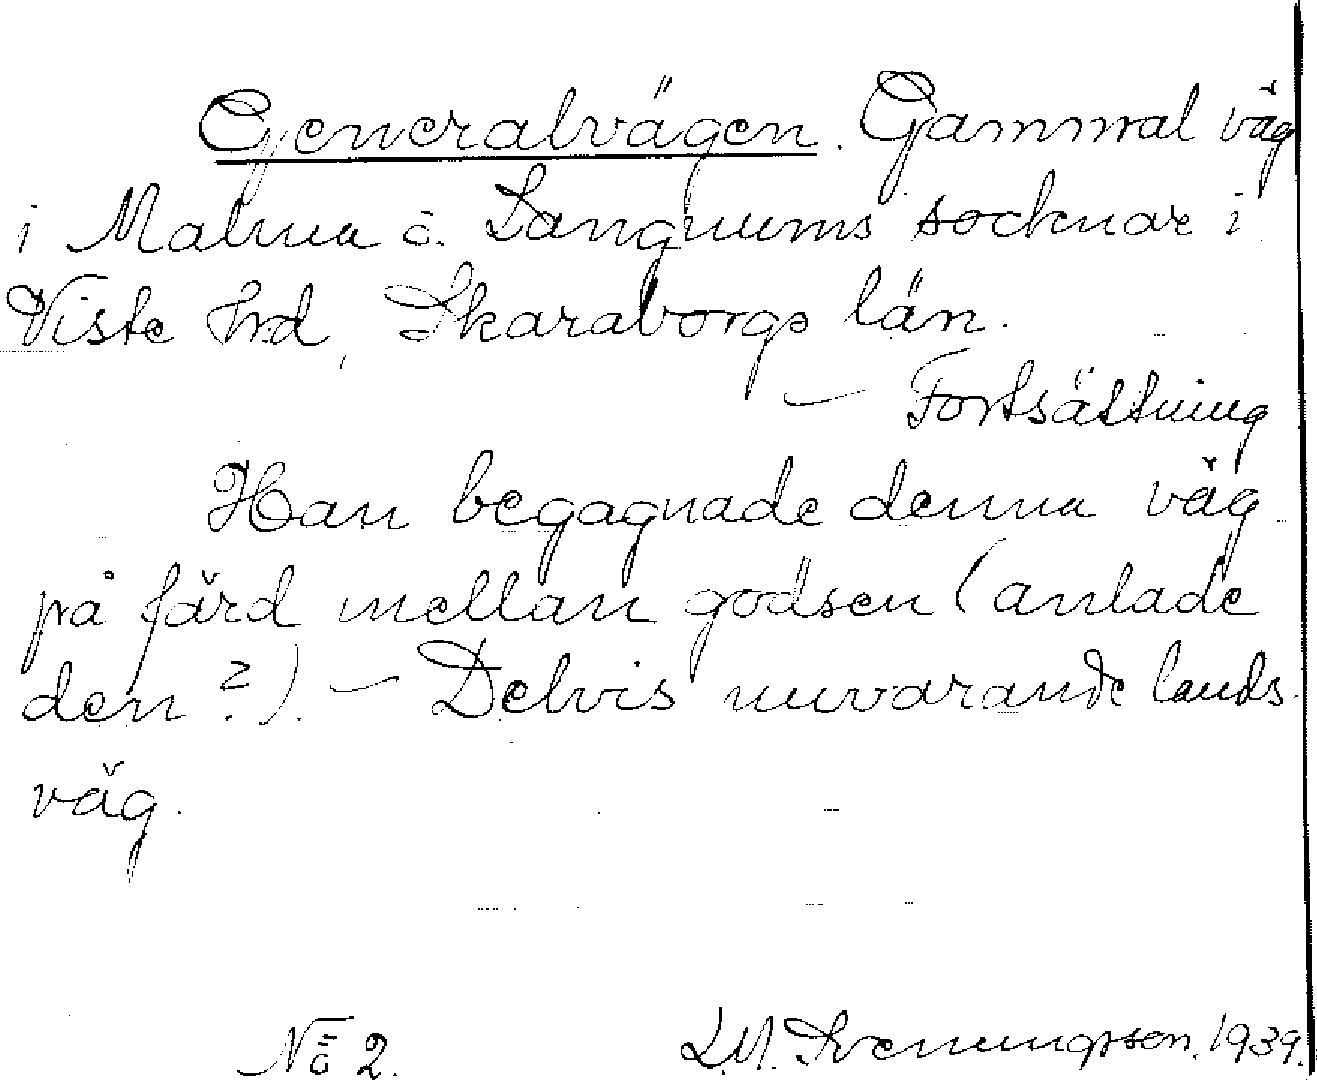 Generalvägen. Gammal väg
i Malma o. Langnums socknar i
Viste hrd, Skaraborgs län.
— Fortsättning
Han begagnade denna väg
på färd mellan godsen (anlade
den?). — Delvis nuvarande lands-
väg.
No 2. L.M. Svenungsson. 1939.